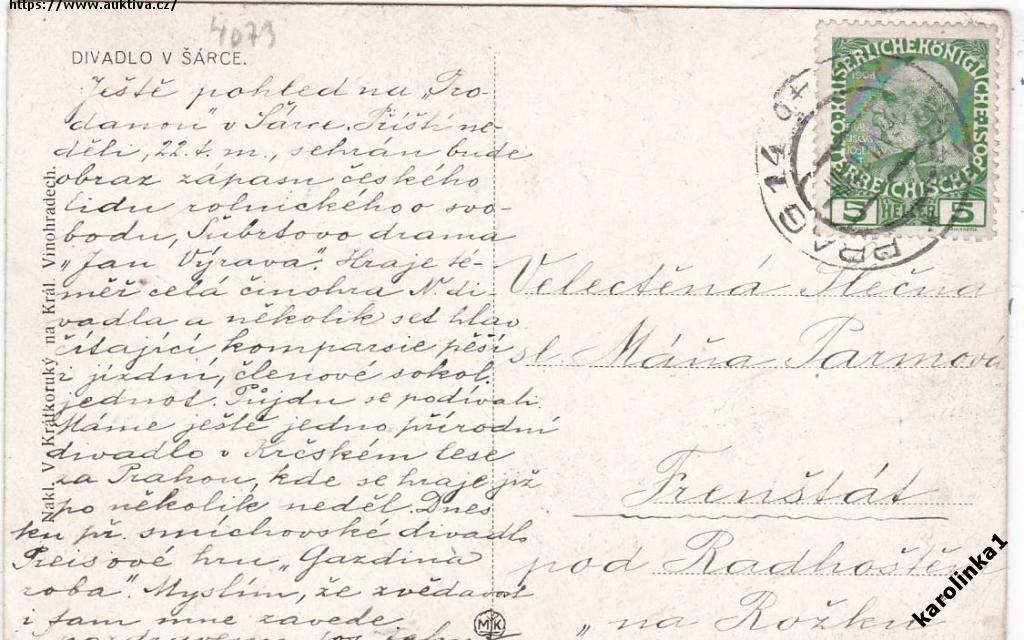 https://www.auktiva.cz/
4079
DIVADLO V ŠÁRCE.
Ještě pohled na „Pro-
danou" v Šárce. Příští ne-
děli, 22. t. m., sehrán bude
obraz zápasu českého
lidu rolnického o svo-
bodu, Šubrtovo drama
„Jan Výrava". Hraje te-
měř celá činohra N. di-
vadla a několik set hlav
čítající komparsie pěší
i jízdní, členové sokol.
jednot. Půjdu se podívati.
Máme ještě jedno přírodní
divadlo v Krčském lese
za Prahou, kde se hraje již
po několik neděl. Dnes
ku př. smíchovské divadlo
Preisové hru „Gazdina
roba". Myslím, že zvědavost
i sam mne zavede.
Nakl. V. Krátkoruký na Král. Vinohradech.
MK
KAISERLICHE KÖNIGLICHE
ÖSTERREICHISCHE
1908
5 HELLER 5
PRAG
14
Velectěná Slečna
sl. Máňa Parmová
Frenštát
pod Radhoštěm
„na Rožku
karolinka1